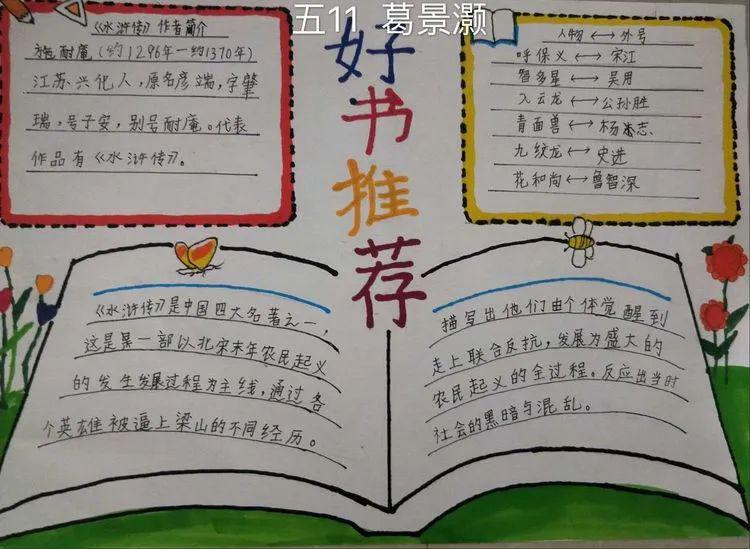 五11 葛景灏
好书推荐
《水浒传》作者简介
施耐庵(约1296年—约1370年)
江苏兴化人,原名彦端,字肇
瑞,号子安,别号耐庵。代表
作品有《水浒传》。
人物⟷外号
呼保义⟷宋江
智多星⟷吴用
入云龙⟷公孙胜
青面兽⟷杨志
九纹龙⟷史进
花和尚⟷鲁智深
《水浒传》是中国四大名著之一,
这是某一部以北宋末年农民起义
的发生发展过程为主线,通过各
个英雄被逼上梁山的不同经历。
描写出他们由个体觉醒到
走上联合反抗,发展为盛大的
农民起义的全过程。反应出当时
社会的黑暗与混乱。